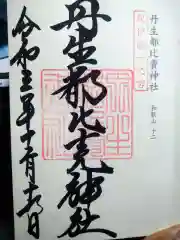 丹生都比賣神社
和歌山
紀伊國一之宮
丹生都比売神社
令和 年十 月 日